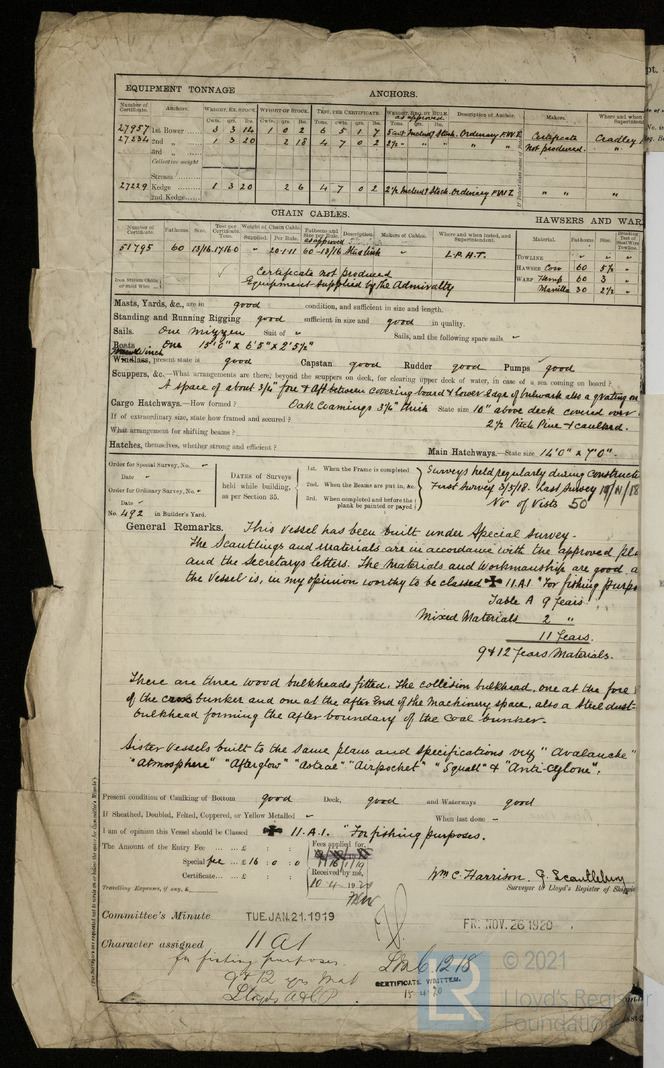 EQUIPMENT TONNAGE
ANCHORS.
Number of Certificate. Anchors. Weight, Ex. Stock. Weight of Stock. Test, per Certificate. Weight Req. by Rule. Description of Anchor. Makers. Where and when
Superintend
Cwts. qrs. lbs. Cwts. qrs. lbs. Tons. cwts. qrs. lbs.
as approved
27957 1st Bower 3 3 14 1 0 2 6 5 1 7 Stock. Ordinary Certificate Cradley
27234 2nd " 1 3 20 2 18 4 7 0 2 2½ " " " " Not produced. "
3rd "
Collective weight
Stream
27229 Kedge 1 3 20 2 6 4 7 0 2 2½ Stock Ordinary " " "
2nd Kedge
CHAIN CABLES.
HAWSERS AND WAR
Number of Certificate. Fathoms. Size. Test per Certificate. Tons. Weight of Chain Cable. Supplied. Per Rule. Fathoms and Size per Rule. Description. Makers of Cables. Where and when tested, and Superintendent. Material. Fathoms Size
as approved
51795 60 13/16 17.16.0 " 20.1.11 60-13/16 Stud link " L.P.H.T.
Towline " "
Hawser Coir 60 5½ "
Warp Hemp 60 3 "
Manilla 30 2½ "
Iron Stream Chain or Steel Wire
Certificate not produced
Equipment supplied by the Admiralty
Masts, Yards, &c., are in good condition, and sufficient in size and length.
Standing and Running Rigging good sufficient in size and good in quality.
Sails. One mizzen Suit of " Sails, and the following spare sails "
Boats One 15'6" x 6'5" x 2'5½"
Windlass, present state is good Capstan good Rudder good Pumps good
Scuppers, &c.—What arrangements are there, beyond the scuppers on deck, for clearing upper deck of water, in case of a sea coming on board?
A space of about 3¼" fore & aft between covering board & lower edge of bulwark also a grating on
Cargo Hatchways.—How formed? Oak Coamings 3¼" thick State size 10" above deck covered over
If of extraordinary size, state how framed and secured?
2½ Pitch Pine & caulked.
What arrangement for shifting beams?
Hatches, themselves, whether strong and efficient?
Main Hatchways.—State size 14'0" x 7'0".
Order for Special Survey, No. "
Date "
Order for Ordinary Survey, No. "
Date "
No. 492 in Builder's Yard.
Dates of Surveys held while building, as per Section 35.
1st. When the Frame is completed
2nd. When the Beams are put in, &c.
3rd. When completed and before the plank be painted or payed
Surveys held regularly during Constructi
First Survey 3/5/18. Last Survey
No of Visits 50
General Remarks. This vessel has been built under Special Survey.
The Scantlings and materials are in accordance with the approved pla
and the Secretarys letters. The Materials and Workmanship are good, a
the Vessel is, in my opinion worthy to be classed ✠ 11.A1 "For fishing purpo
Table A 9 Years.
Mixed Materials 2 "
11 Years.
9 & 12 Years Materials.
There are three wood bulkheads fitted, the collision bulkhead, one at the fore
of the cross bunker and one at the after end of the machinery space, also a Steel dust
bulkhead forming the after boundary of the Coal bunker.
Sister Vessels built to the same plans and specifications viz "Avalanche"
"Atmosphere" "Afterglow" "Astral" "Airpocket" "Squall" & "Anti-cylone".
Present condition of Caulking of Bottom good Deck, good and Waterways good
If Sheathed, Doubled, Felted, Coppered, or Yellow Metalled " When last done "
I am of opinion this Vessel should be Classed ✠ 11.A.1. "For fishing purposes.
The Amount of the Entry Fee £ : :
Special fee £ 16 : 0 : 0
Certificate : :
Travelling Expenses, if any, £
Fees applied for,
Received by me,
10.4.1920
Wm C. Harrison. J. Scantlebury
Surveyor to Lloyd's Register of Shippin
Committee's Minute TUE. JAN. 21. 1919
FRI. NOV. 26 1920
Character assigned 11 A1
for fishing purposes.
9 & 12 yrs Mat
Lloyds A & C P.
6.12.18
CERTIFICATE WRITTEN.
15.4.20
© 2021
LR
Lloyd's Register
Foundation